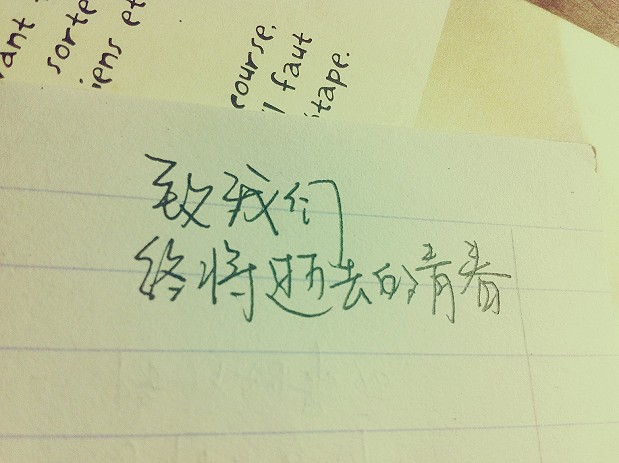 ant
sorte
iens et
course,
l faut
itape.
致我们
终将逝去的青春